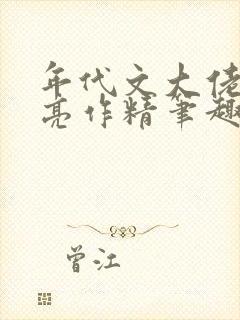 年代文大佬
亮作精笔趣
曾江